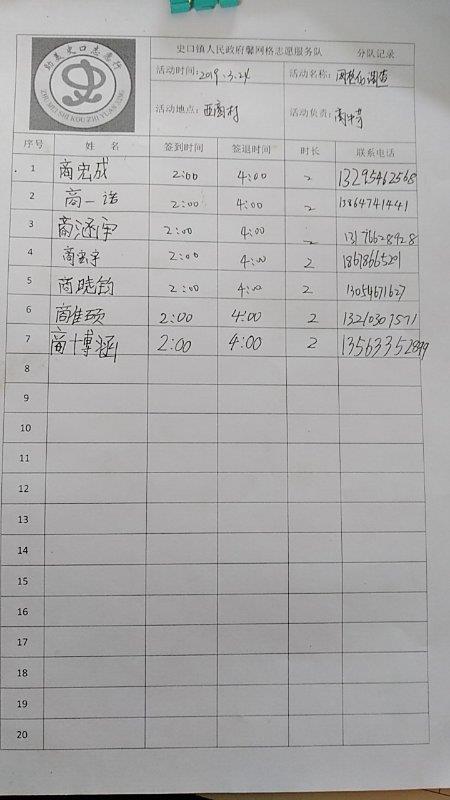 助美史口志愿行
ZHU MEI SHI KOU ZHI YUAN XING
史口镇人民政府馨网格志愿服务队 分队记录
活动时间: 2019.3.24 活动名称:
活动地点: 西商村 活动负责:
序号 姓 名 签到时间 签退时间 时长 联系电话
1 商宏成 2:00 4:00 2 13295462568
2 高一诺 2:00 4:00 2 13864741441
3 商涵宇 2:00 4:00 13176628928
4 2:00 4:00 2 18678665201
5 商晓钧 2:00 4:00 2 13054671627
6 商佳硕 2:00 4:00 2 13210307571
7 商博涵 2:00 4:00 2 13563352849
8
9
10
11
12
13
14
15
16
17
18
19
20